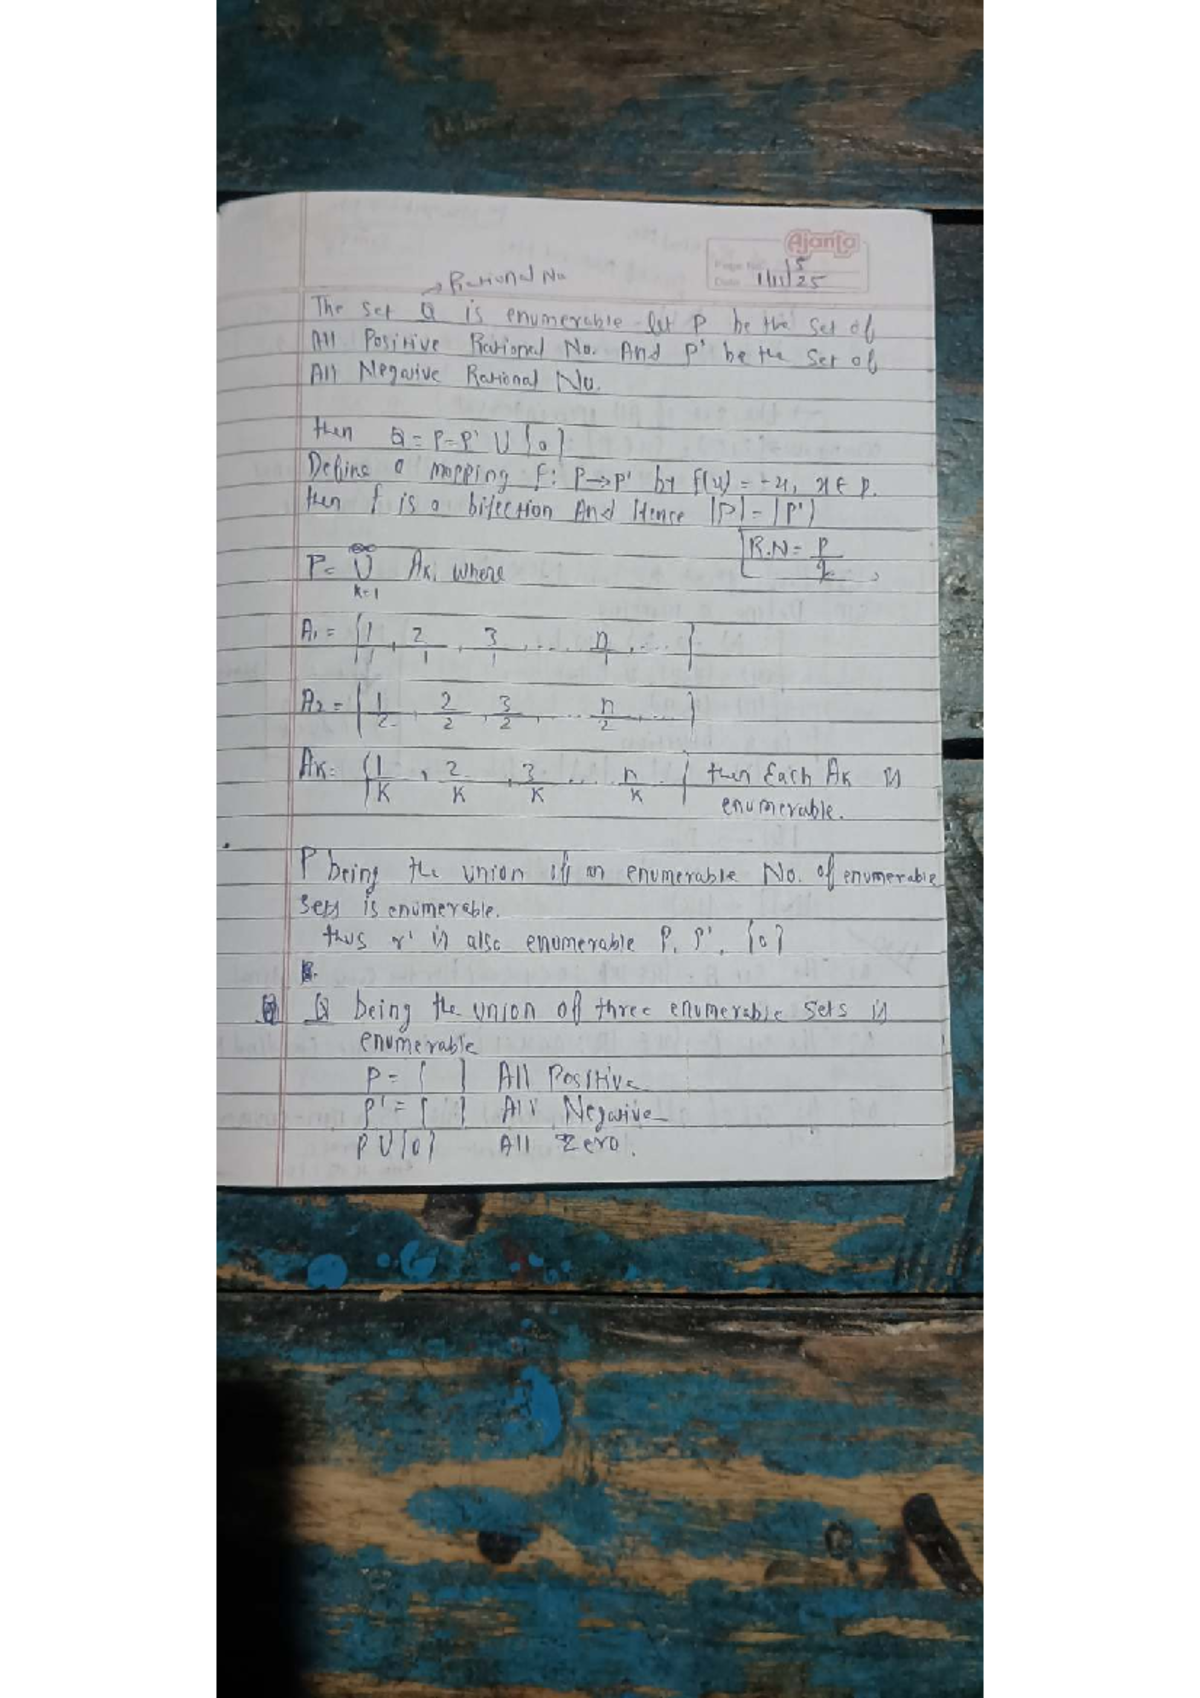 Ajanta
Page No. 15
Date 1/11/25
→ Rational No
The set Q is enumerable let P be the set of
All Positive Rational No. And P' be the set of
All Negative Rational No.
then Q = P = P' U {0}
Define a mapping f: P→P' by f(x) = -x, x ∈ P.
then f is a bijection And Hence |P| = |P'|
R.N = P/q
P = ∞ U k=1 AK, where
A1 = {1/1, 2/1, 3/1, ... n/1, ...}
A2 = {1/2, 2/2, 3/2, ... n/2, ...}
AK = {1/K, 2/K, 3/K ... n/K } then Each AK is
enumerable.
P being the union of an enumerable No. of enumerable
sets is enumerable.
thus is also enumerable P, P', {0}
Q being the union of three enumerable sets is
enumerable
P = { } All Positive
P' = { } All Negative
P U {0} All Zero.